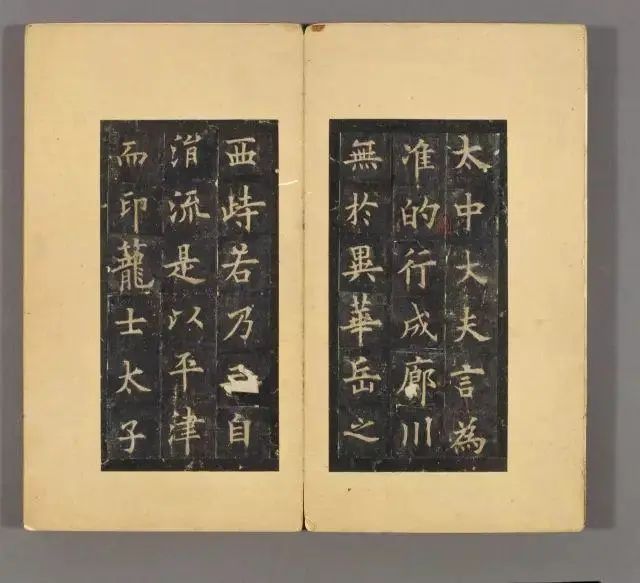 太中大夫言為
准的行成廊川
無於異華岳之
西峙若乃己自
涓流是以平津
而印蘢士太子